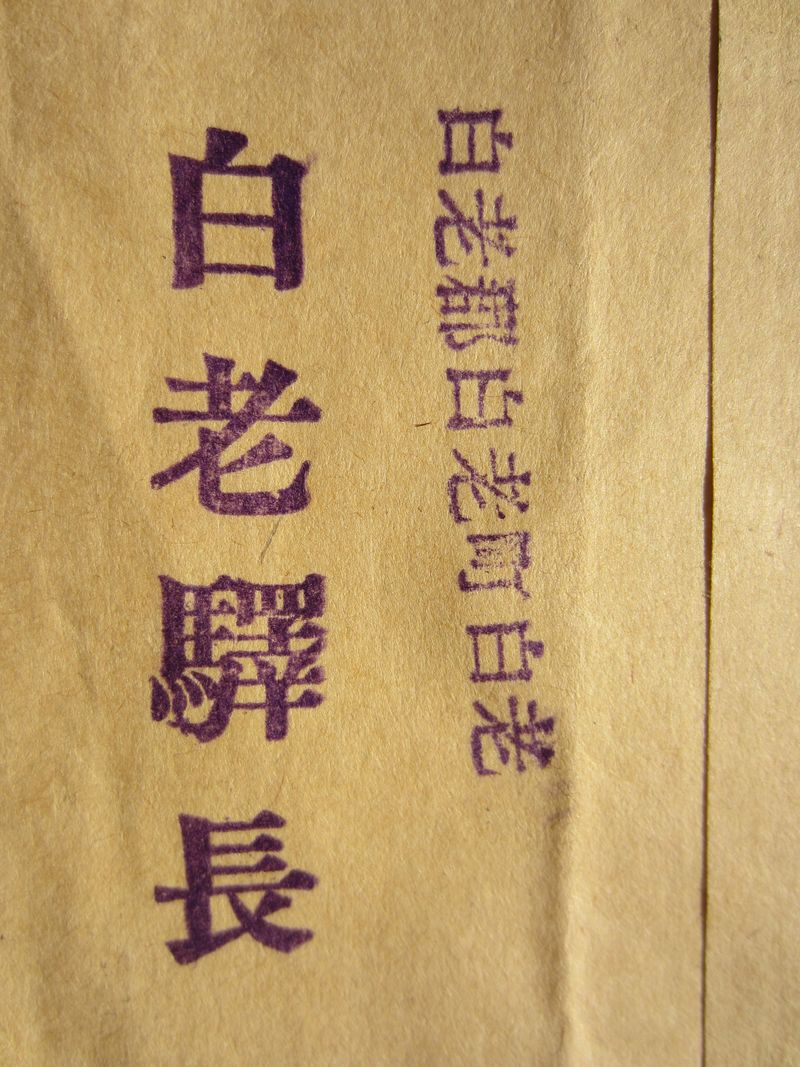 白老郡白老町白老
白老驛長